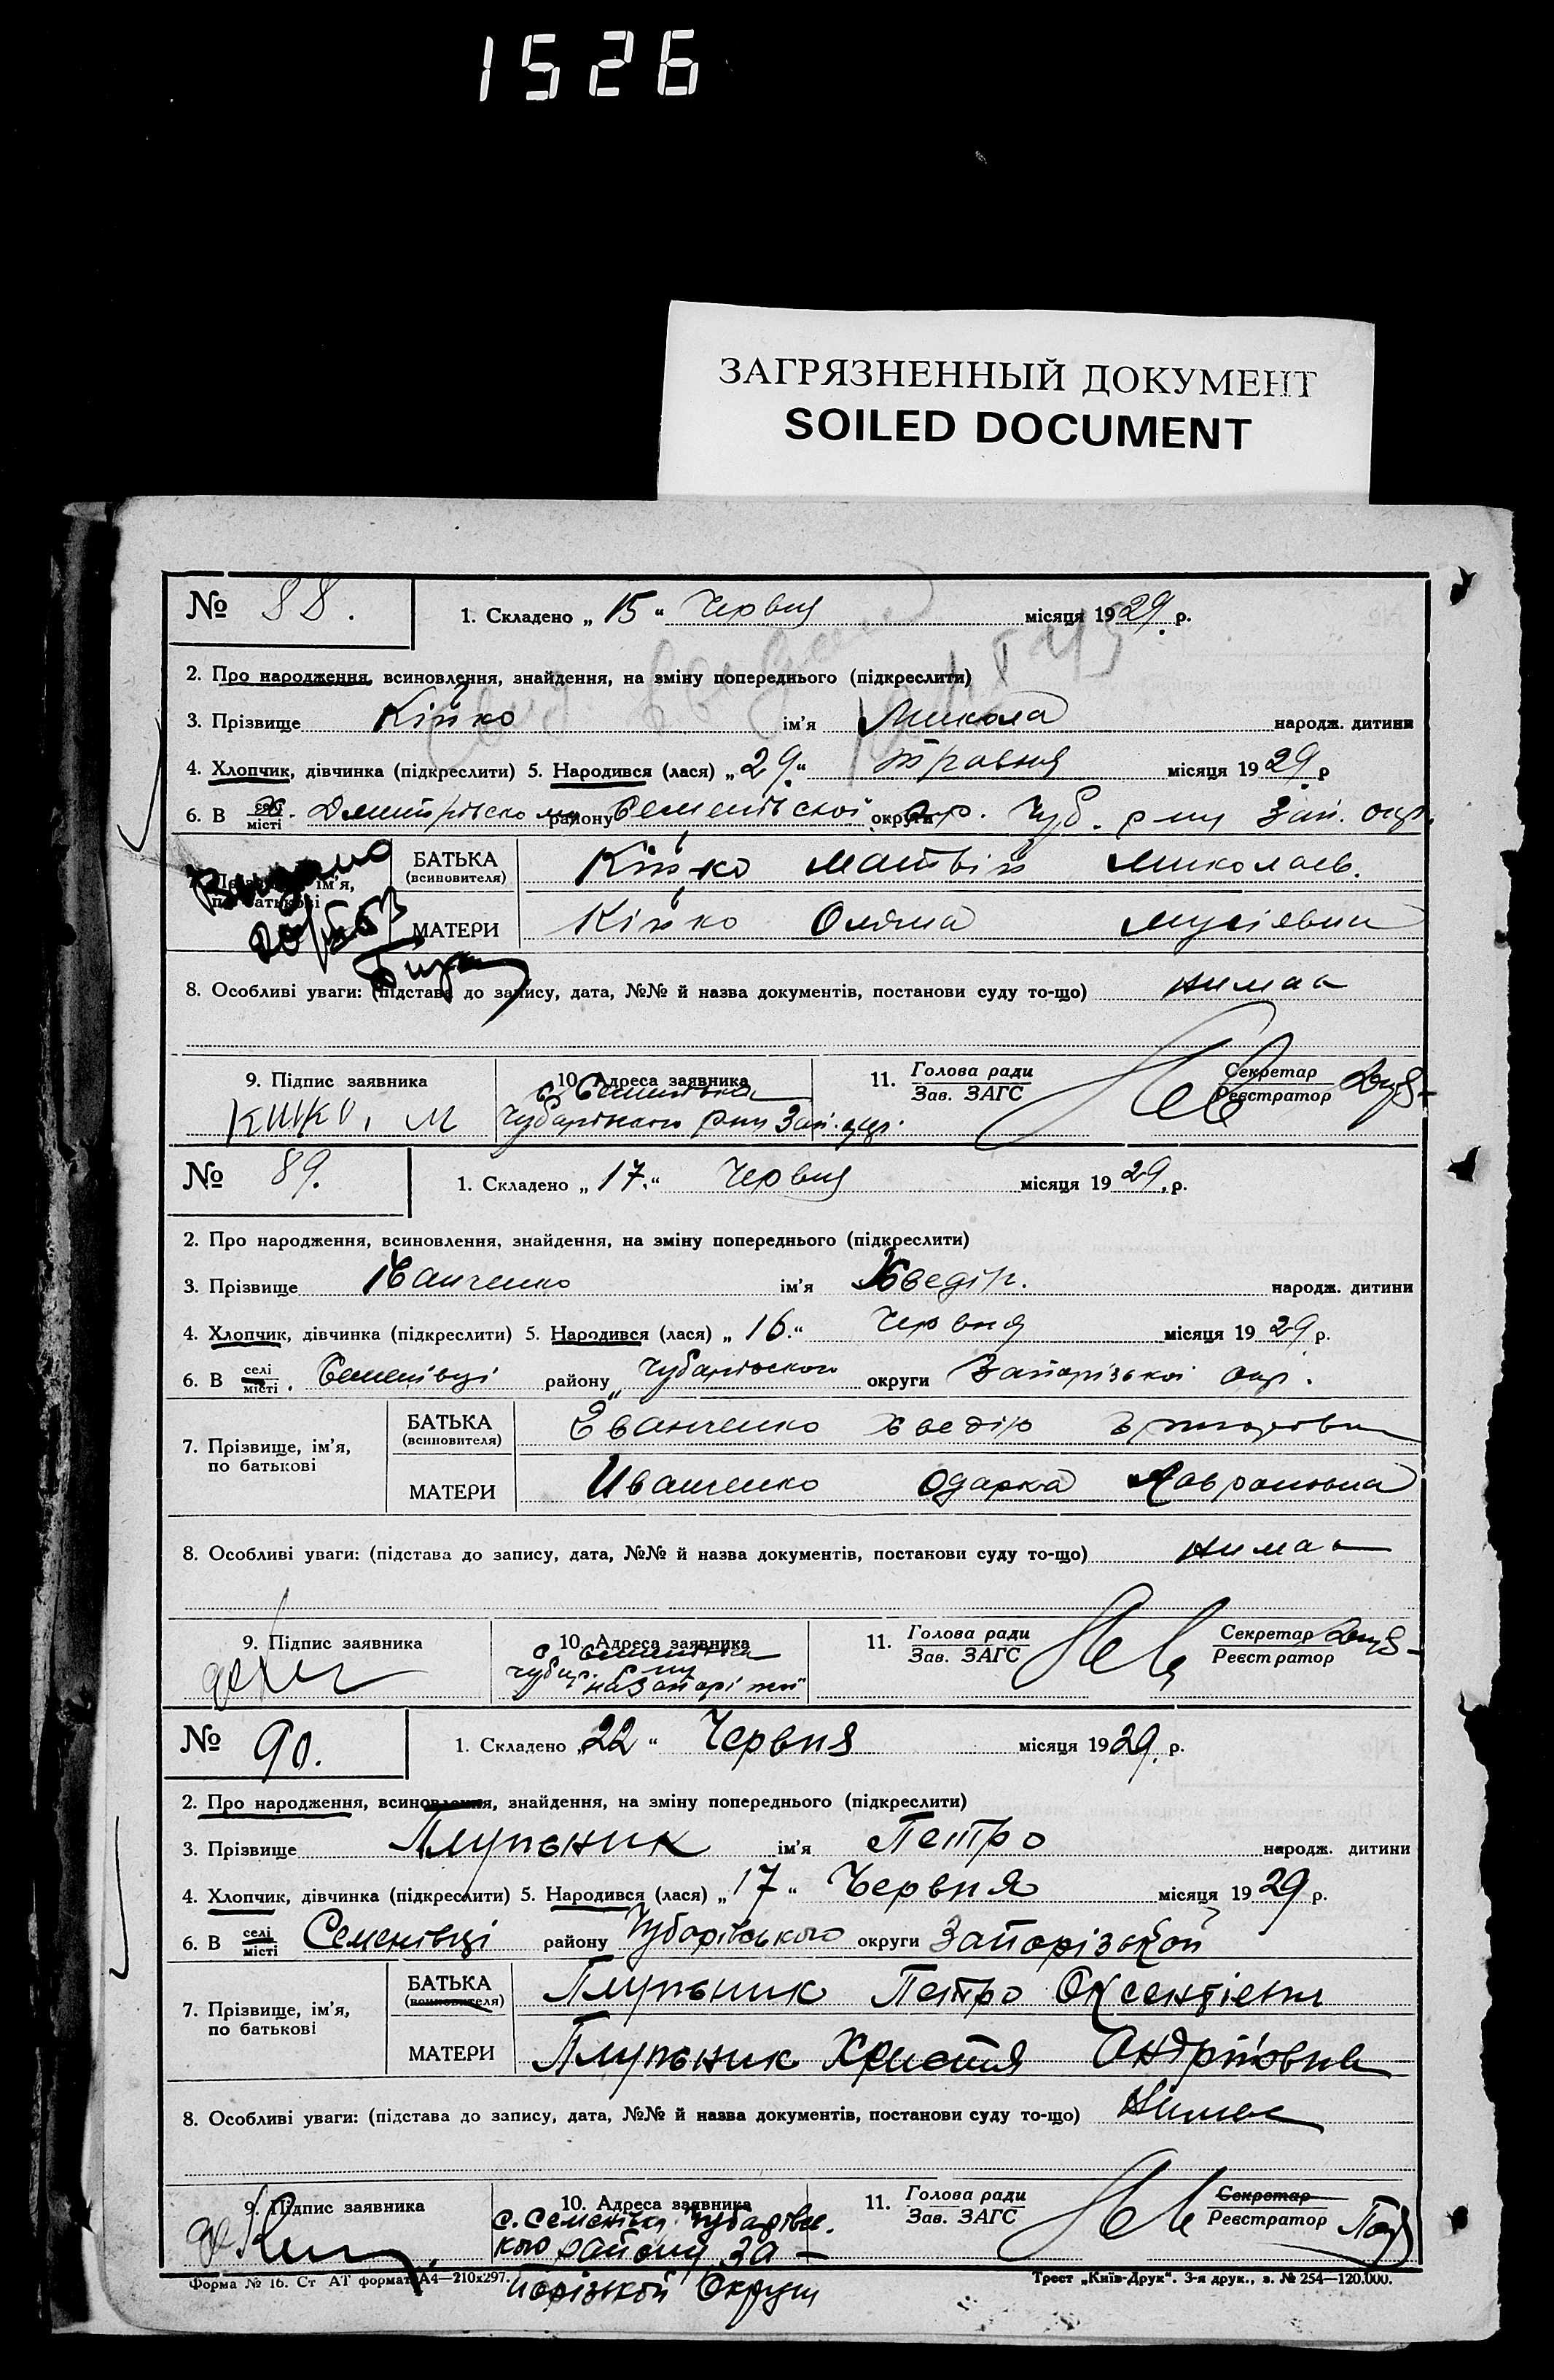 1526
ЗАГРЯЗНЕННЫЙ ДОКУМЕНТ
SOILED DOCUMENT
№ 88. 1. Складено „ 15 “ Червня місяця 1929. р.
2. Про народження, всиновлення, знайдення, на зміну попереднього (підкреслити)
3. Прізвище Кійко ім’я Микола народж. дитини
4. Хлопчик, дівчинка (підкреслити) 5. Народився (лася) „ 29. “ травня місяця 1929. р
6. В селі місті району Семенівскоі округи Чуб. р ну Зап. окр.
БАТЬКА (всиновителя) Кійко Матвій Миколаев.
ім’я, по батькові
Видано
МАТЕРИ Кійко Оляна Мусіевна
8. Особливі уваги: (підстава до запису, дата, №№ й назва документів, постанови суду то-що) нимае
9. Підпис заявника 10. Адреса заявника 11. Голова ради Зав. ЗАГС Секретар Реєстратор
Кийко, М с Семенівка
Чубарівкого р ну Зап. окр.
№ 89. 1. Складено „ 17. “ Червня місяця 19 29. р.
2. Про народження, всиновлення, знайдення, на зміну попереднього (підкреслити)
3. Прізвище Іванченко ім’я Хведір. народж. дитини
4. Хлопчик, дівчинка (підкреслити) 5. Народився (лася) „ 16. “ Червня місяця 19 29 р.
6. В селі місті. Семенівці району Чубарівского округи Запорізькоі окр.
7. Прізвище, ім’я, по батькові
БАТЬКА (всиновителя) Еванченко Хведір
МАТЕРИ Иванченко Одарка
8. Особливі уваги: (підстава до запису, дата, №№ й назва документів, постанови суду то-що) нимае
9. Підпис заявника 10. Адреса заявника 11. Голова ради Зав. ЗАГС Секретар Реєстратор
с Семенівка
№ 90. 1. Складено „ 22 “ Червня місяця 1929. р.
2. Про народження, всиновлення, знайдення, на зміну попереднього (підкреслити)
3. Прізвище ім’я Петро народж. дитини
4. Хлопчик, дівчинка (підкреслити) 5. Народився (лася) „ 17 “ Червня місяця 19 29 р.
6. В селі місті Семенівці району Чубарівського округи Запорізької
7. Прізвище, ім’я, по батькові
БАТЬКА (всиновителя) Петро Оксентіевич
МАТЕРИ Христя Андріівна
8. Особливі уваги: (підстава до запису, дата, №№ й назва документів, постанови суду то-що) Нимае
9. Підпис заявника 10. Адреса заявника 11. Голова ради Зав. ЗАГС Секретар Реєстратор
с. Семенівка Чубарівс.
кого району За–
порізкой Округи
Форма № 16. Ст АТ формат А4—210x297.
Трест „Київ-Друк“. 3-я друк., з. № 254—120.000.